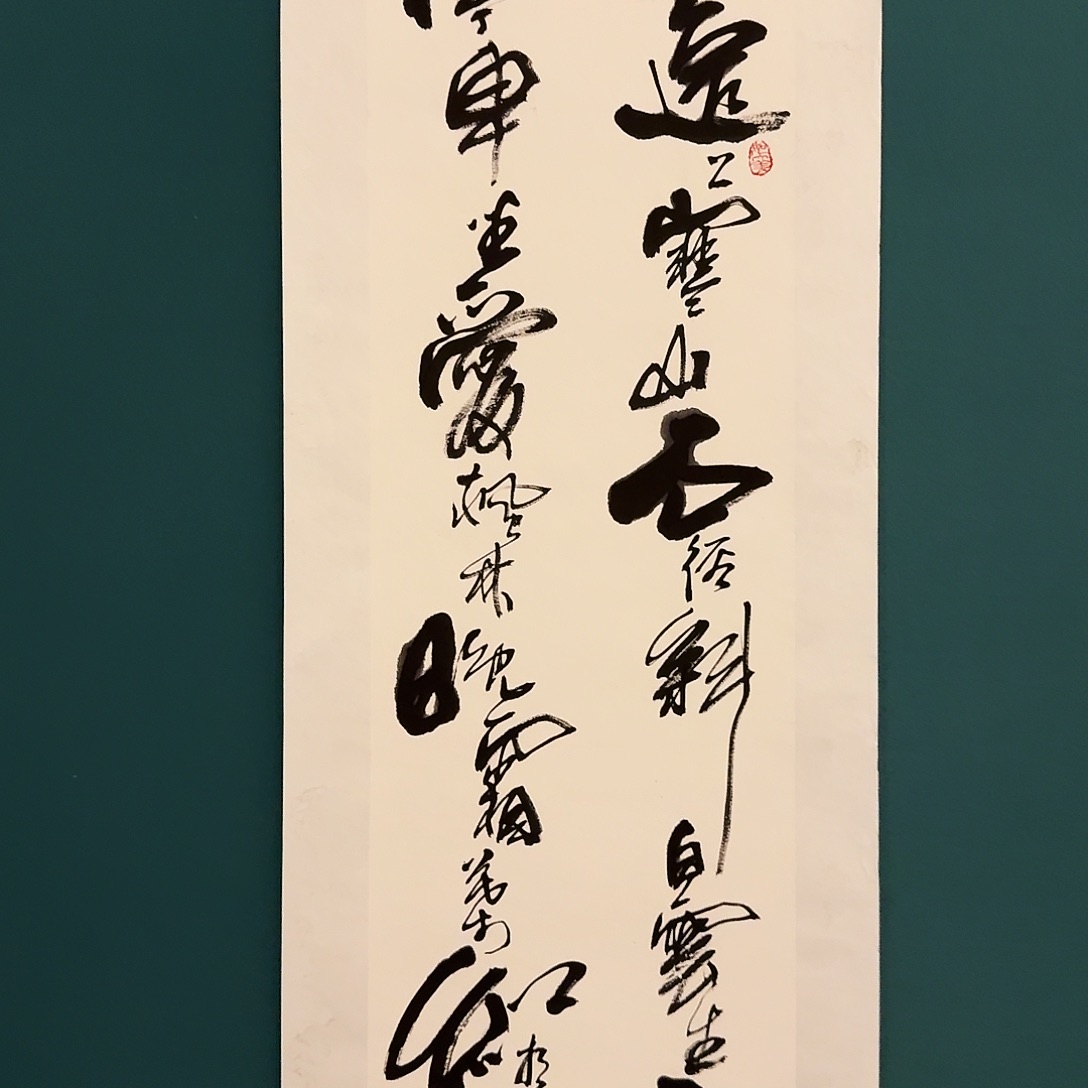 遠上寒山石徑斜白雲生
停車坐愛楓林晚霜葉紅於